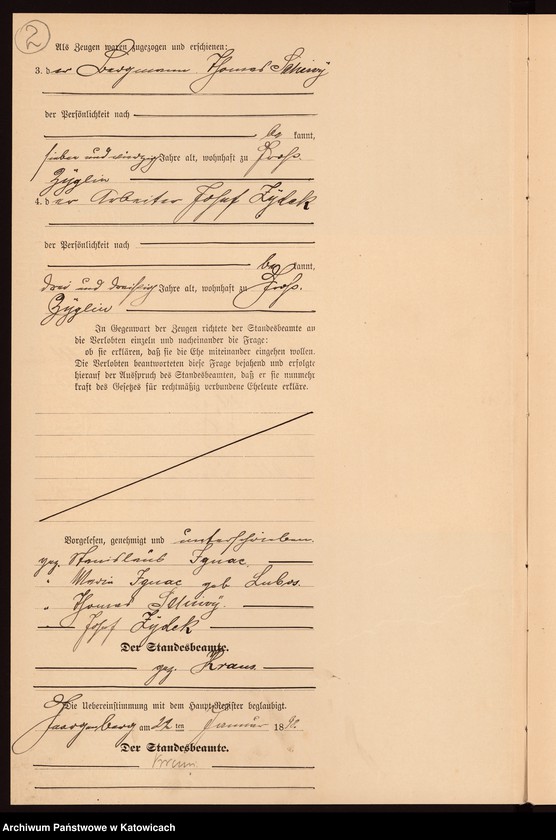 2
Als Zeugen waren zugezogen und erschienen:
3. der Bergmann Thomas
der Persönlichkeit nach
be kannt,
sieben und vierzig Jahre alt, wohnhaft zu Groß.
Zyglin
4. der Arbeiter Josef Zÿdek
der Persönlichkeit nach
be kannt,
drei und dreißig Jahre alt, wohnhaft zu Groß.
Zyglin
In Gegenwart der Zeugen richtete der Standesbeamte an
die Verlobten einzeln und nacheinander die Frage:
ob sie erklären, daß sie die Ehe miteinander eingehen wollen.
Die Verlobten beantworteten diese Frage bejahend und erfolgte
hierauf der Ausspruch des Standesbeamten, daß er sie nunmehr
kraft des Gesetzes für rechtmäßig verbundene Eheleute erkläre.
Vorgelesen, genehmigt und unterschrieben.
gez. Stanislaus Ignac.
" Maria Ignac geb Lubos.
" Thomas
" Josef Zÿdek
Der Standesbeamte.
gez. Kraus.
Die Uebereinstimmung mit dem Haupt-Register beglaubigt.
Georgenberg am 22 ten Januar 1890.
Der Standesbeamte.
Archiwum Państwowe w Katowicach